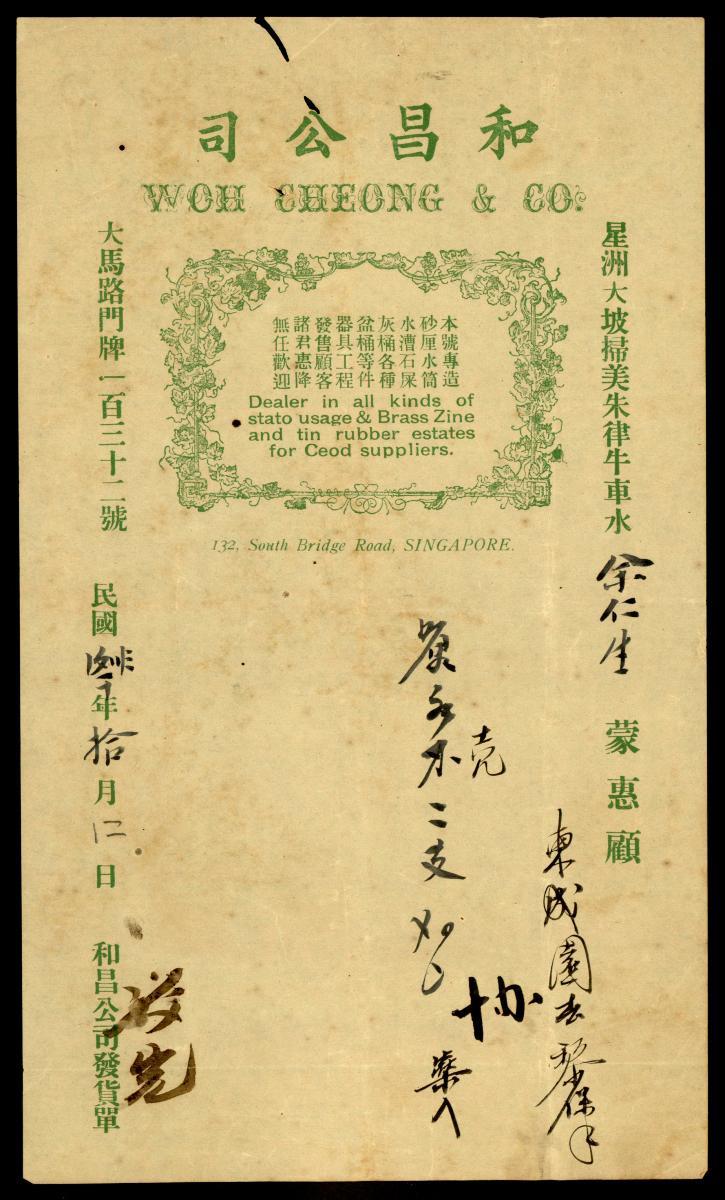 和昌公司
WOH CHEONG & CO.
星洲大坡掃美朱律牛車水
本號專造
砂厘水筒
水漕石屎
灰桶各種
盆桶等件
器具工程
發售顧客
諸君惠降
無任歡迎
Dealer in all kinds of
stato usage & Brass Zine
and tin rubber estates
for Ceod suppliers.
大馬路門牌一百三十二號
132, South Bridge Road, SINGAPORE.
余仁生 蒙惠顧
東成園
二支
協
民國 年拾月 日
和昌公司發貨單